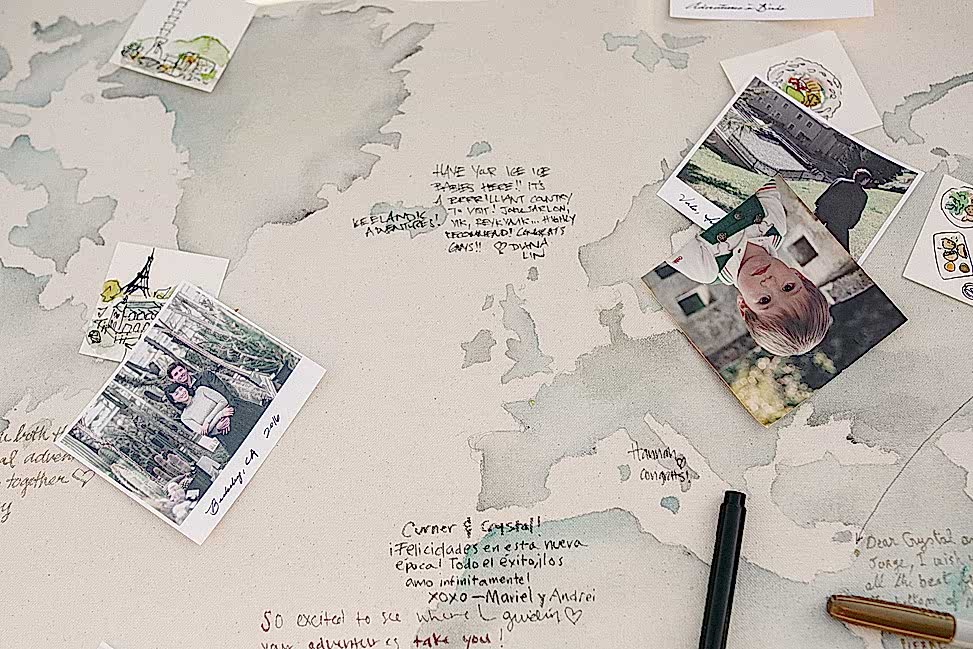 Adventures in Birds
HAVE YOUR ICE ICE
BABIES HERE!! IT'S
A BRRRILLIANT COUNTRY
TO VISIT! JOKULSARLON,
VIK, REYKJAVIK... HIGHLY
RECOMMEND! CONGRATS
GUYS!! ♡ DIANA
LIN
ICELANDIC
ADVENTURES!!
both
adven
together ♡
Berkeley, CA 2016
Hannah
congrats!
& Crystal!
¡Felicidades en esta nueva
epoca! Todo el éxito, ¡los
amo infinitamente!
XOXO — Mariel y Andrei
So excited to see where
your take you!
Dear Crystal
Jorge, I wish
all the best
bottom of